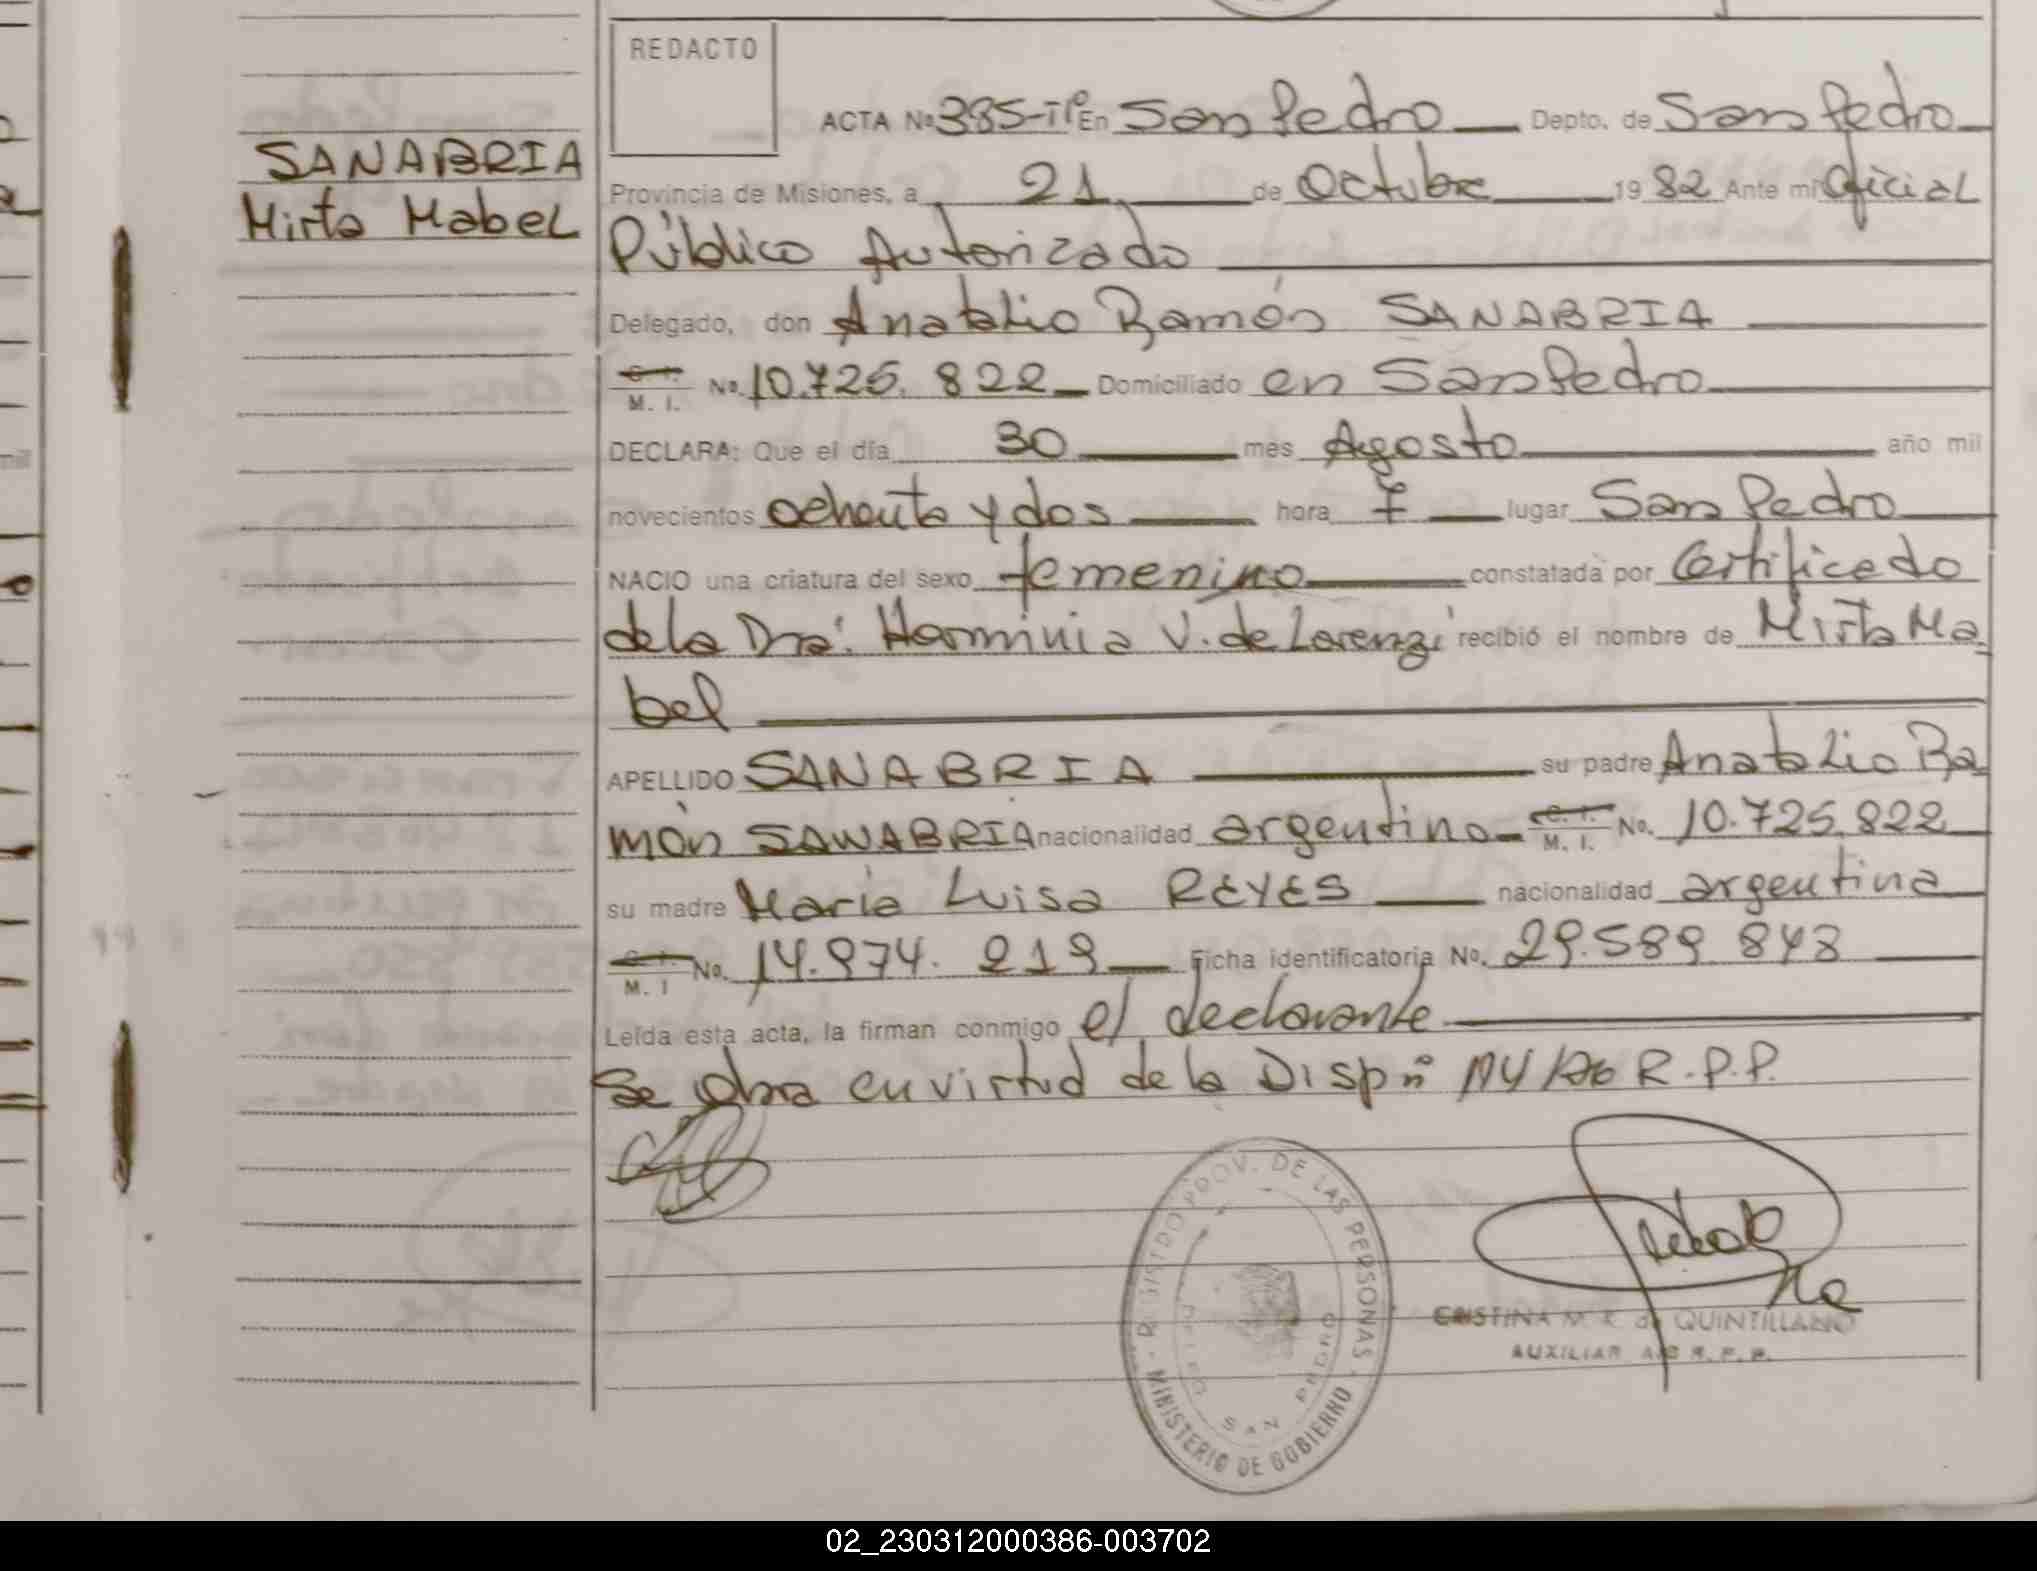 REDACTO
ACTA No 385-Tº En San Pedro Depto. de San Pedro
SANABRIA
Mirta Mabel
Provincia de Misiones, a 21 de Octubre 19 82 Ante mi Oficial
Público Autorizado
Delegado, don Anatalio Ramón SANABRIA
C. I.
M. I. No. 10.725.822 Domiciliado en San Pedro
DECLARA: Que el día 30 mes Agosto año mil
novecientos ochenta y dos hora 7 lugar San Pedro
NACIO una criatura del sexo femenino constatada por Certificado
de la Dra. Herminia V. de Lorenzi recibió el nombre de Mirta Ma
bel
APELLIDO SANABRIA su padre Anatalio Ra
món SANABRIA nacionalidad argentino C. I.
M. I. No. 10.725.822
su madre María Luisa REYES nacionalidad argentina
C. I.
M. I No. 14.974.219 Ficha identificatoria No. 29.589.843
Leída esta acta, la firman conmigo el declarante
Se obra en virtud de la Dispn R.P.P.
REGISTRO PROV. DE LAS PERSONAS
MINISTERIO DE GOBIERNO
SAN PEDRO
CRISTINA M. R. de QUINTILLANO
AUXILIAR R. P. P.
02_230312000386-003702